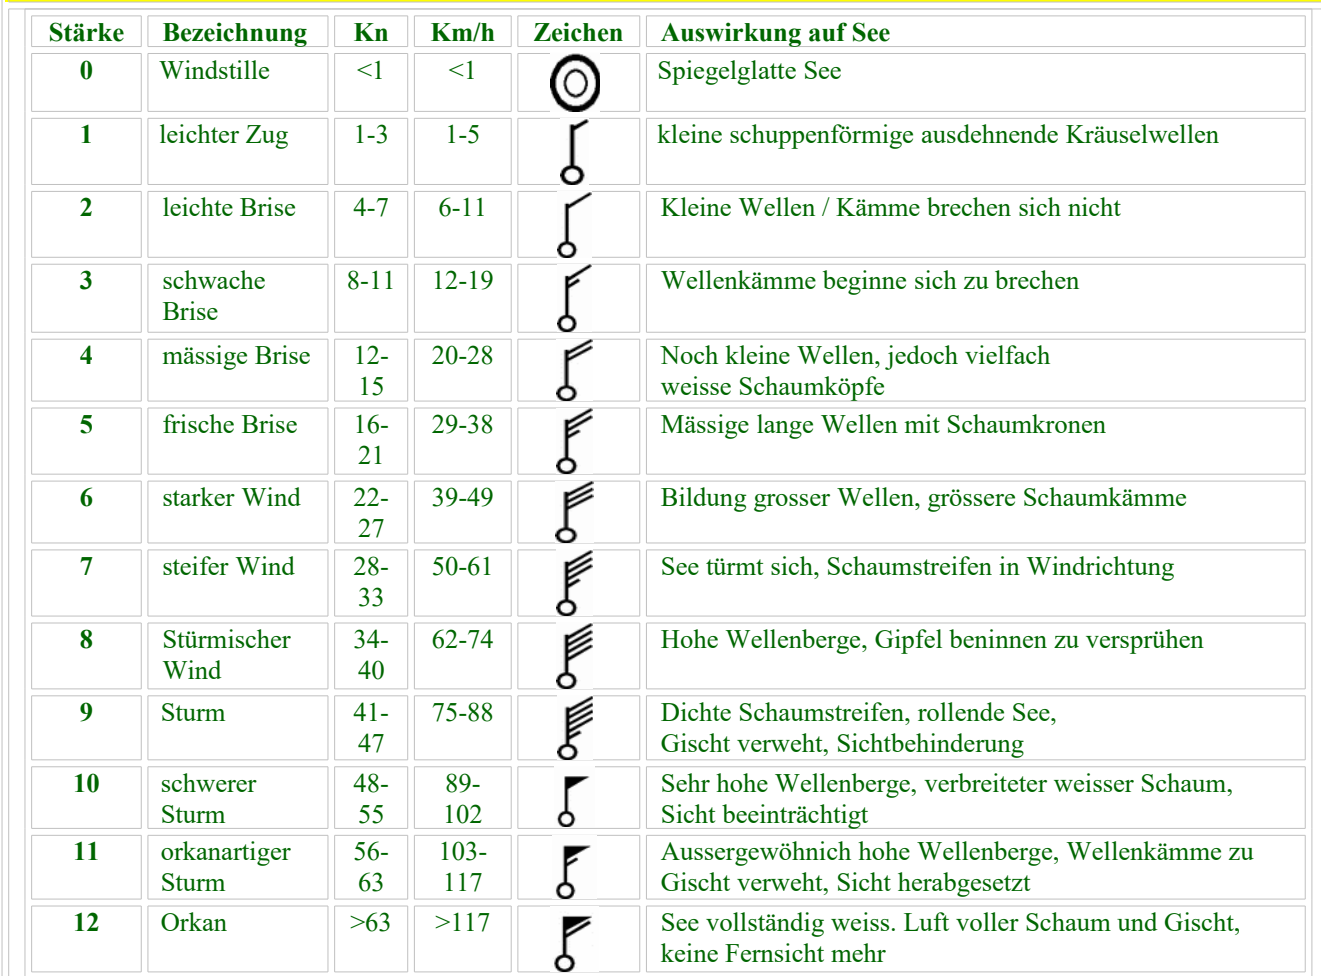 Stärke Bezeichnung Kn Km/h Zeichen Auswirkung auf See
0 Windstille <1 <1 Spiegelglatte See
1 leichter Zug 1-3 1-5 kleine schuppenförmige ausdehnende Kräuselwellen
2 leichte Brise 4-7 6-11 Kleine Wellen / Kämme brechen sich nicht
3 schwache 8-11 12-19 Wellenkämme beginne sich zu brechen
Brise
4 mässige Brise 12- 20-28 Noch kleine Wellen, jedoch vielfach
15 weisse Schaumköpfe
5 frische Brise 16- 29-38 Mässige lange Wellen mit Schaumkronen
21
6 starker Wind 22- 39-49 Bildung grosser Wellen, grössere Schaumkämme
27
7 steifer Wind 28- 50-61 See türmt sich, Schaumstreifen in Windrichtung
33
8 Stürmischer 34- 62-74 Hohe Wellenberge, Gipfel beninnen zu versprühen
Wind 40
9 Sturm 41- 75-88 Dichte Schaumstreifen, rollende See,
47 Gischt verweht, Sichtbehinderung
10 schwerer 48- 89- Sehr hohe Wellenberge, verbreiteter weisser Schaum,
Sturm 55 102 Sicht beeinträchtigt
11 orkanartiger 56- 103- Aussergewöhnich hohe Wellenberge, Wellenkämme zu
Sturm 63 117 Gischt verweht, Sicht herabgesetzt
12 Orkan >63 >117 See vollständig weiss. Luft voller Schaum und Gischt,
keine Fernsicht mehr